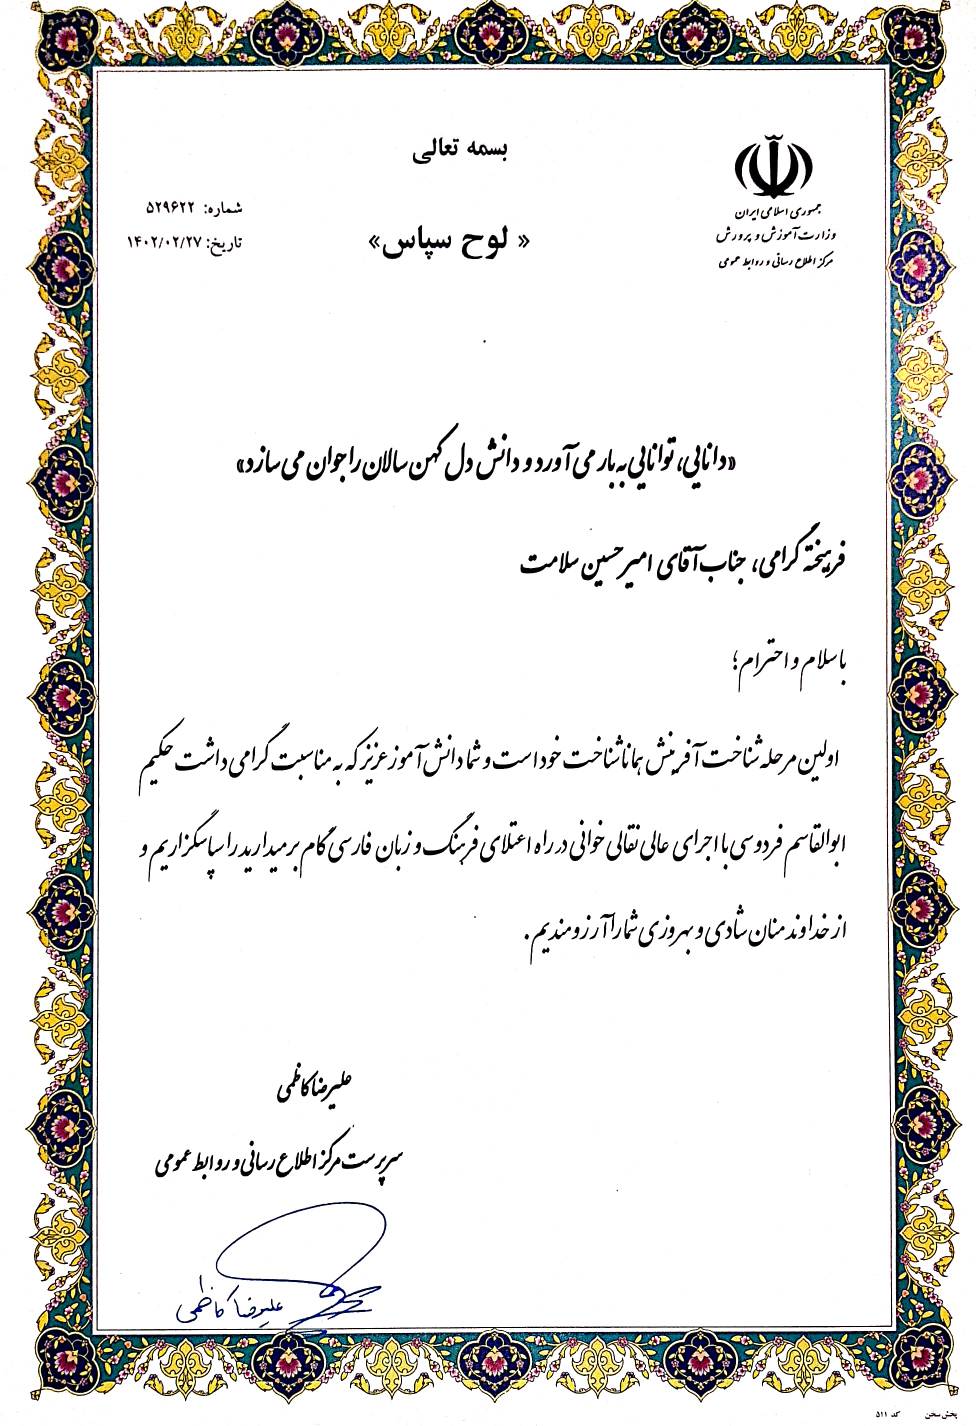 بسمه تعالی
جمهوری اسلامی ایران
وزارت آموزش و پرورش
مرکز اطلاع رسانی و روابط عمومی
شماره: ۵۲۹۶۲۲
تاریخ: ۱۴۰۲/۰۲/۲۷
« لوح سپاس»
«دانایی، توانایی به بار می آورد و دانش دل کهن سالان را جوان می سازد»
فرهیخته گرامی، جناب آقای امیرحسین سلامت
با سلام و احترام؛
اولین مرحله شناخت آفرینش همانا شناخت خود است و شما دانش آموز عزیز که به مناسبت گرامی داشت حکیم
ابوالقاسم فردوسی با اجرای عالی نقالی خوانی در راه اعتلای فرهنگ و زبان فارسی گام برمیدارید را سپاسگزاریم و
از خداوند منان شادی و بهروزی شما را آرزومندیم.
علیرضا کاظمی
سرپرست مرکز اطلاع رسانی و روابط عمومی
علیرضا کاظمی
پخش سخن کد ۵۱۱